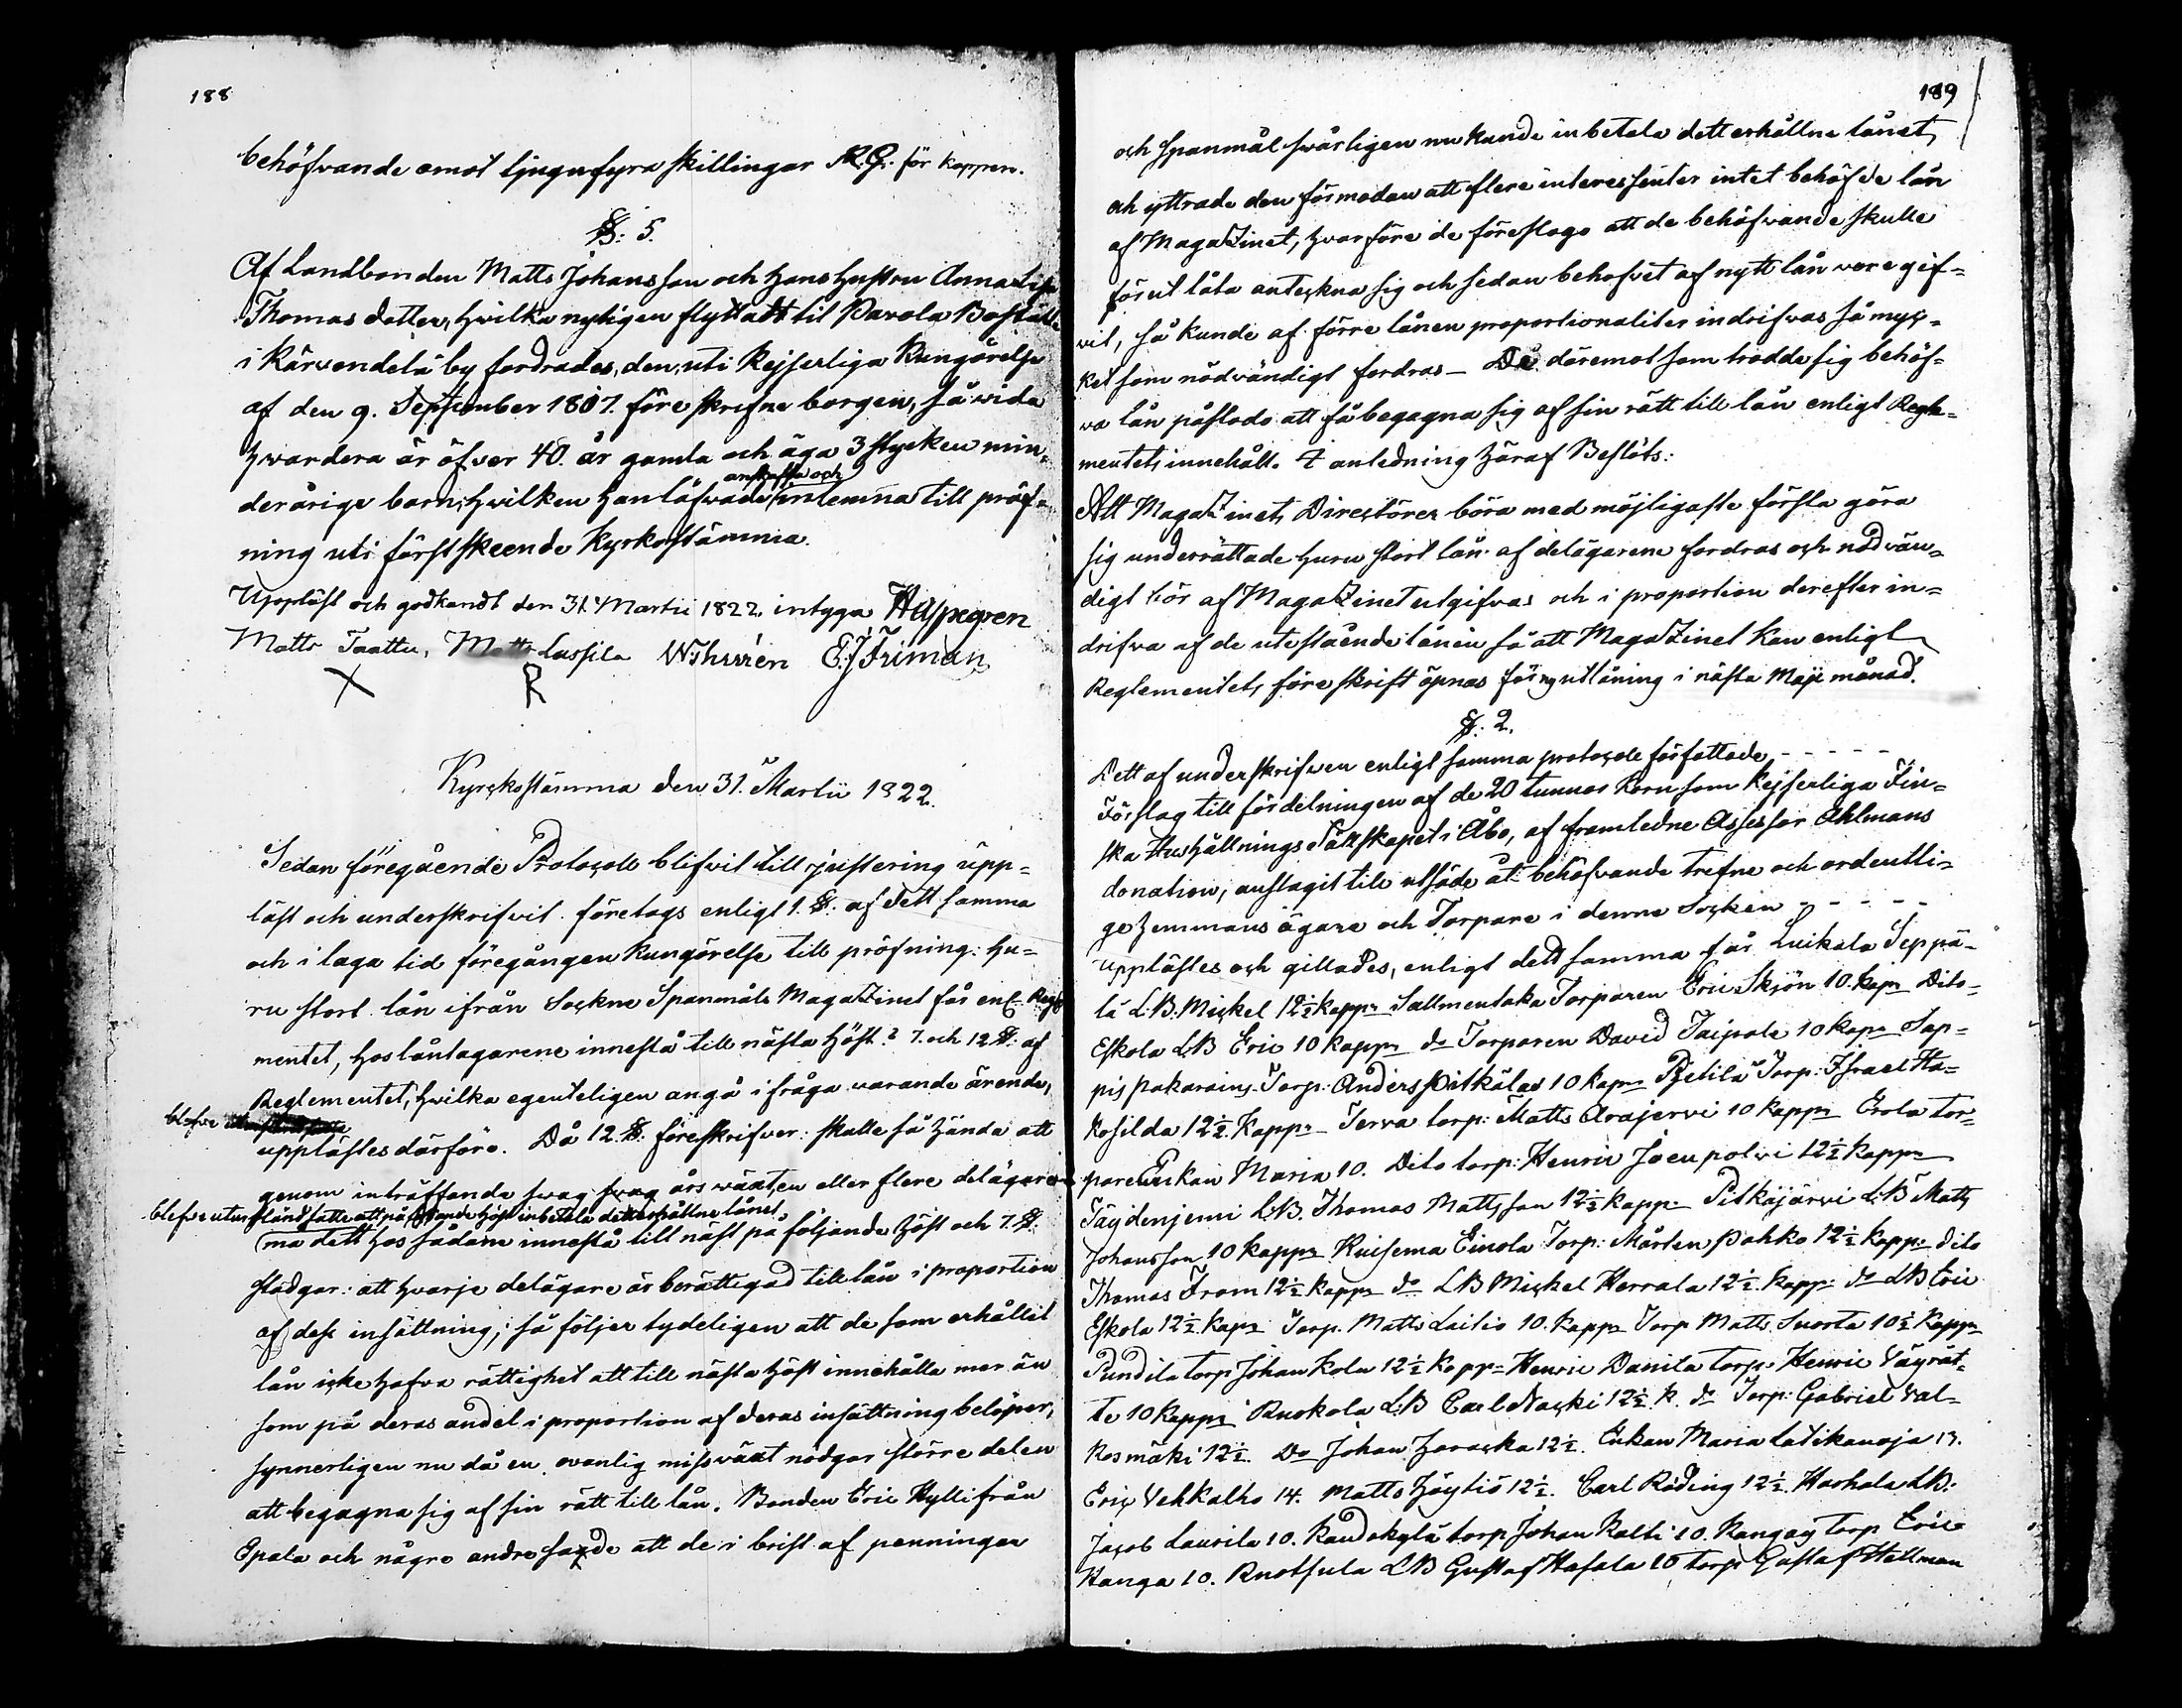 188
behöfvande emot tjugufyra skillingar R.G. för kappen.
§: 5.
Af Landbonden Matts Johansson och hans hustru Anna Lisa
Thomas dotter, hvilka nyligen flyttadt til Parola Boställe
i Kärvendelä by fordrades, den, uti Kejserliga Kungörelse
af den 9. September 1807. föreskrifne borgen, så vida
hvardera är öfver 40. år gamla och äga 3 stycken min-
anskaffa och
derårige barn; hvilken han låfvade inlemna till pröf-
ning uti först skeende Kyrkostämma.
Uppläst och godkandt den 31. Martii 1822. intyga
Matts Taattu, Matts Lassila E.J. Friman
X R
Kyrckostämma den 31. Martii 1822.
Sedan föregående Protocoll blifvit till justering upp-
läst och underskrifvit. företogs enligt 1. §: af dett samma
och i laga tid föregången Kungörelse till pröfning: hu-
ru stort lån ifrån Sockne Spanmåls Magazinet får enl. Regle
mentet, hos låntagarene innestå till nästa höst? 7. och 12 §: af
Reglementet, hvilka egenteligen angå i fråga varande ärende,
blefve
upplästes därföre. Då 12. §: föreskrifver: skulle så hända att
genom inträffande svag årsväxt, en eller flere delägare
blefve utur stånd satte att på höst inbetala dett erhållne lånet,
må dett hos sådane innestå till näst på följande höst och 7. §.
stadgar: att hvarje delägare är berättigad till lån i proportion
af dess insättning; så följer tydeligen att de som erhållit
lån icke hafva rättighet att till nästa höst innehålla mer än
som på deras andel i proportion af deras insättning belöper,
synnerligen nu då en ovanlig missväxt nödgar större delen
att begagna sig af sin rätt till lån. Bonden Eric Hylli från
Opala och någre andre sade att de i brist af penningar
189
och spanmål svårligen nu kunde inbetala dett erhållne lånet,
och yttrade den förmodan att flere interessenter intet behöfde lån
af Magazinet, hvarföre de föreslogo att de behöfvande skulle
förut låta anteckna sig och sedan behofvet af nytt lån vore gif-
vit, så kunde af förre lånen proportionaliter indrifvas så myc-
ket som nödvändigt fordras – De däremot som trodde sig behöf-
va lån påstodo att få begagna sig af sin rätt till lån enligt Regle-
mentets innehåll. I anledning häraf Beslöts:
Att Magazinets Directörer böra med möjligaste första göra
sig underrättade huru stort lån af delägarene fordras och nödvän-
digt bör af Magazinet utgifvas och i proportion derefter in-
drifva af de utestående lånen så att Magazinet kan enligt
Reglementets föreskrift öpnas för ny utlåning i nästa Maji månad.
§: 2.
Dett af underskrifven enligt samma protocoll författade - - - - -
Förslag till fördelningen af de 20 tunnor Korn som Kejserliga Fin-
ska Hushållnings Sällskapet i Åbo, af framledne Assessor Ahlmans
donation, anslagit till utsäde åt behöfvande trefne och ordentli-
ge hemmans ägare och Torpare i denne Socken - - - - -
upplästes och gillades, enligt dett samma får Luikala Seppä-
lä L:B: Mickel 12½ kappr Sallmentaka Torparen Eric Skjön 10. kapr Dito
Eskola LB Eric 10 kappr do Torparen David Taipale 10 kapr Sap-
pis pakarains Torp: Anders Pitkälas 10 kapr Pjetilä Torp: Israel Ha-
kosilda 12½. Kappr Terva torp: Matts Arajervi 10 kappr Erola tor-
pare Enkan Maria 10. Dito torp: Henric Joenpolvi 12½ kappr
Täydenjemi L:B. Thomas Mattsson 12½ kappr Pitkäjärvi L:B Matts
Johansson 10 kappr Kuisema Einola Torp: Mårten Pahko 12½ kapp: dito
Thomas From 12½ kappr do LB Mickel Herrala 12½ kapp: do LB Eric
Eskola 12½. kapr Torp. Matts Laitio 10. kappr Torp Matts Suorta 10½ kappr
Pundila torp Johan Kola 12½ kappr Henric Danila torp: Henric Väyrät-
te 10 kappr Ruokola L:B Carl Nacki 12½ k. do Torp: Gabriel Val-
kosmäki 12½. Do Johan Haracka 12½. Enkan Maria Latikanoja 13.
Eric Vehkalho 14. Matts Höytiö 12½. Carl Röding 12½. Harhala LB.
Jacob Laurila 10. Raudakylä torp Johan Kalli 10. Kangay torp Eric
Kanga 10. Ruotsula LB Gustaf Hasala 10 torp Gustaf Hellman